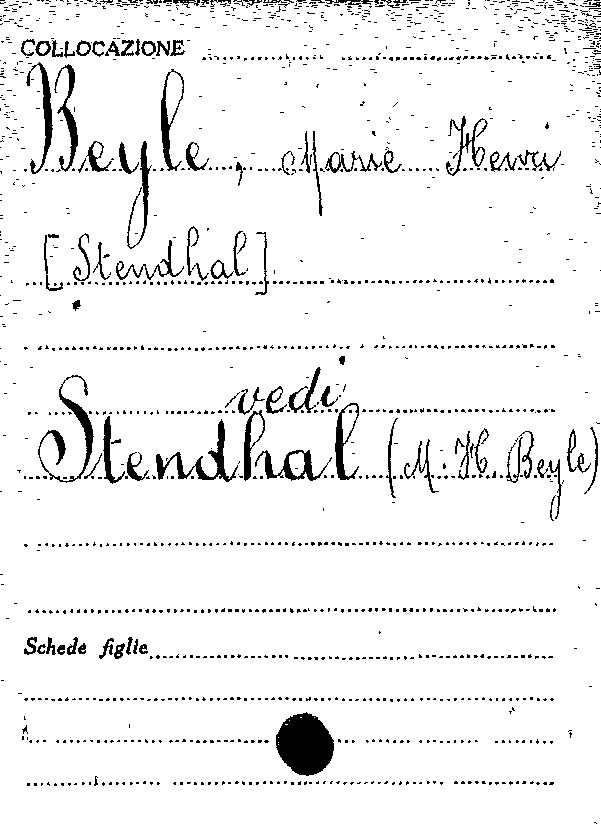 COLLOCAZIONE
Beyle, Marie Henri
[Stendhal]
vedi
Stendhal (M. H. Beyle)
Schede figlie